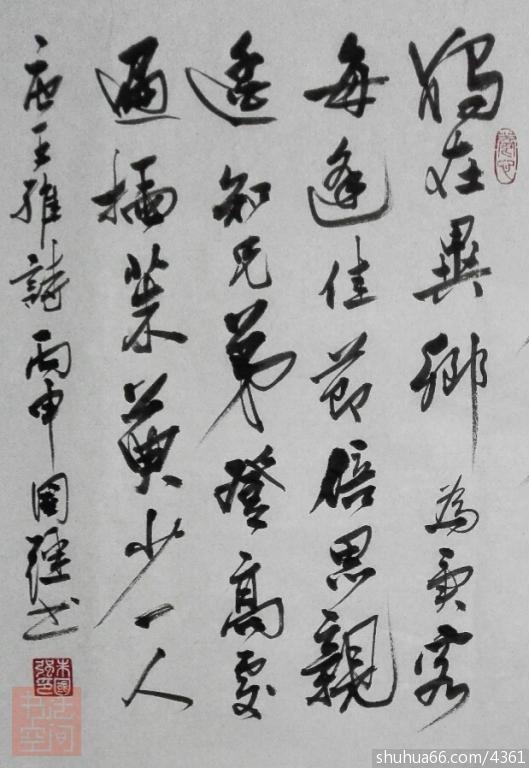 獨在異鄉為異客
每逢佳節倍思親
遙知兄弟登高處
遍插茱萸少一人
唐王維詩丙申國強书
朱國強印
书法空间
shuhua66.com/4361